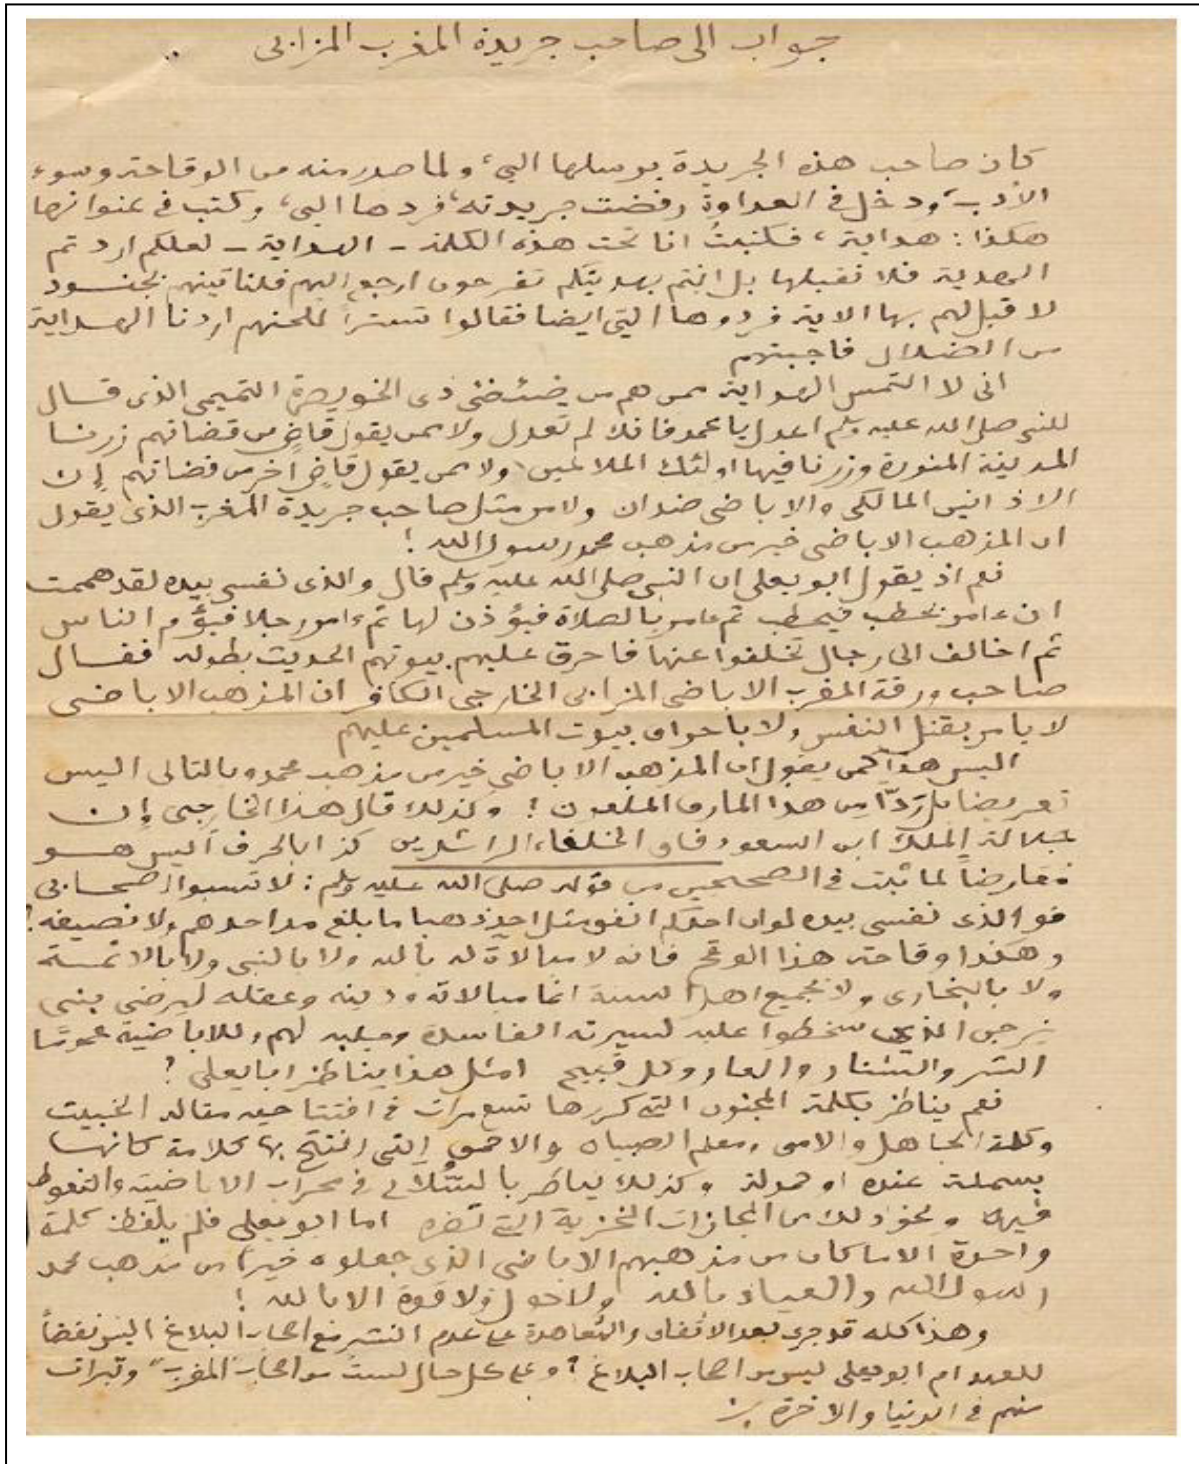 جواب الى صاحب جريدة المغرب المزابى
كان صاحب هذه الجريدة يرسلها اليّ، ولما صدر منه من الوقاحة وسوء
الأدب، ودخل فى العداوة رفضت جريدته، فردها اليّ، وكتب فى عنوانها
هكذا: هداية، فكتبتُ انا تحت هذه الكلمة - الهداية - لعلكم اردتم
الهدية فلا نقبلها بل انتم بهديتكم تفرحون ارجع اليهم فلناتينهم بجنود
لا قبل لهم بها الاية فردوها اليّ ايضا فقالوا تسترا للحنهم اردنا الهداية
من الضلال فاجبتهم
انى لا التمس الهداية ممن هم من ضئضئ ذى الخويصرة التميمى الذى قال
للنبى صلى الله عليه وسلم اعدل يا محمد فانك لم تعدل ولا ممن يقول قاضٍ من قضاتهم زرنا
المدينة المنورة وزرنا فيها اولئك الملاعين، ولا ممن يقول قاضٍ اخر من قضاتهم إن
الاذانين المالكى والاباضى ضدان ولا من مثل صاحب جريدة المغرب الذى يقول
ان المذهب الاباضى خير من مذهب محمد رسول الله!
نعم اذ يقول ابو يعلى ان النبى صلى الله عليه وسلم قال والذى نفسى بيده لقد هممت
ان ءامر بحطب فيحطب ثم ءامر بالصلاة فيؤذن لها ثم ءامر رجلا فيؤم الناس
ثم اخالف الى رجال تخلفوا عنها فاحرق عليهم بيوتهم الحديث بطوله فقال
صاحب ورقة المغرب الاباضى المزابى الخارجى الكافر ان المذهب الاباضى
لا يامر بقتل النفس ولا باحراق بيوت المسلمين عليهم
اليس هذا كمن يقول ان المذهب الاباضى خير من مذهب محمد وبالتالى اليس
تعريضا بل ردّا من هذا المارق الملعون! وكذلك قال هذا الخارجى إن
جلالة الملك ابن السعود فاق الخلفاء الراشدين كذا بالحرف أليس هو
معارضاً لما ثبت فى الصحيحين من قوله صلى الله عليه وسلم: لا تسبوا اصحابى
فو الذى نفسى بيده لو ان احدكم انفق مثل احد ذهبا ما بلغ مد احدهم ولا نصيفه؟
وهكذا وقاحة هذا الوقح فانه لا مبالاة له بالله ولا بالنبى ولا بالائمة
ولا بالبخارى ولا بجميع اهل السنة انما مبالاته ودينه وعقله ليرضى بنى
يزجن الذين سخطوا عليه لسيرته الفاسدة وجلبه لهم وللاباضية عموما
الشر والشنار والعار وكل قبيح امثل هذا يناظر ابا يعلى؟
نعم يناظر بكلمة المجنون التى كررها تسع مرات فى افتتاحية مقاله الخبيث
وكلمة الجاهل والامى ومعلم الصبيان والاحمق التى افتتح بها كلامه كانها
بسملة عنده او حمدلة وكذلك يناظر بـ فى محراب الاباضية والتغوط
فيه ونحو ذلك من المجازات المخزية التى تضره اما ابو يعلى فلم يلفظ كلمة
واحدة الا ما كان من مذهبهم الاباضى الذى جعلوه خيرا من مذهب محمد
رسول الله والعياذ بالله ولا حول ولا قوة الا بالله!
وهذا كله قد جرى بعد الاتفاق والمعاهدة على عدم النشر مع اصحاب البلاغ اليس نقضاً
للعهد ام ابو يعلى ليس من اصحاب البلاغ؟ وعلى كل حال لست من اصحاب "المغرب" وتبرات
منهم فى الدنيا والاخرة